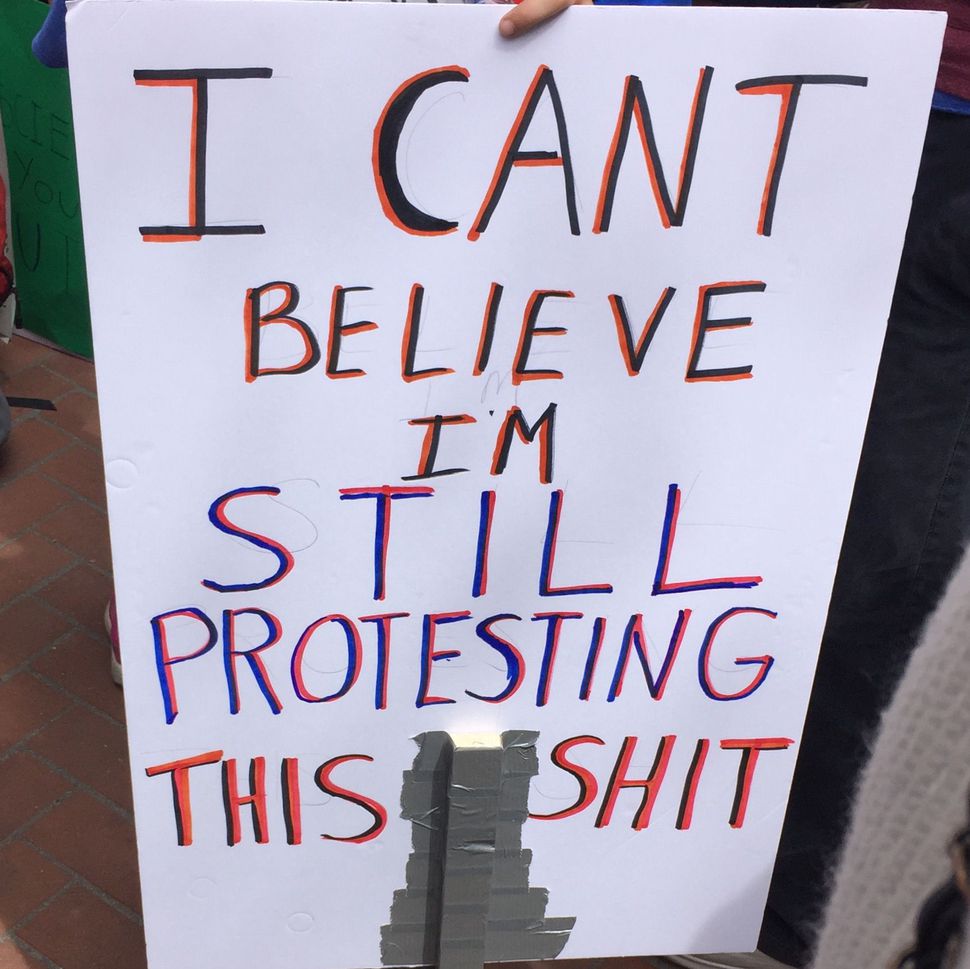 I CANT
BELIEVE
I'M
STILL
PROTESTING
THIS SHIT
YOU